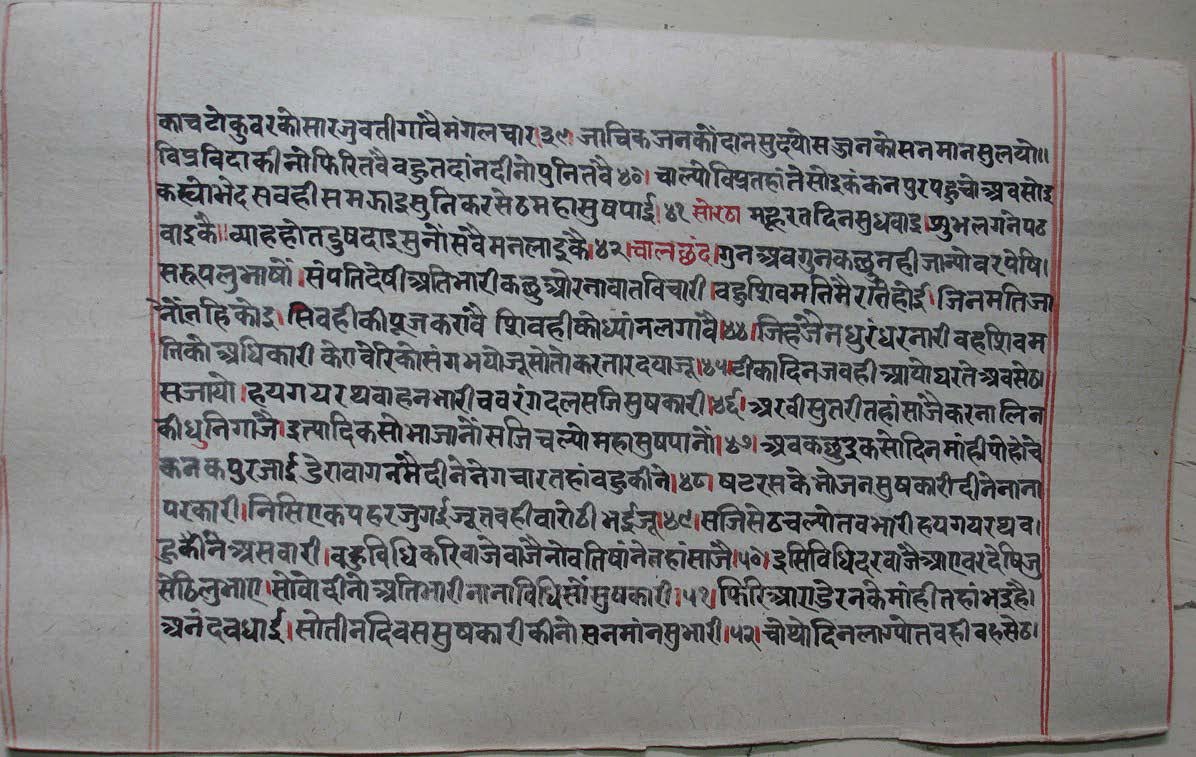 काचटोकुवरकोसारजुवतीगांवैमंगलचार।३९ जाचिकजनकौंदानसुदयोसज्जनकोसनमानसुलयो॥
विप्रविदाकीनोफिरितवैवहुतदांनदीनोपुनितवै४०। चाल्योविप्रतहांतेसोइकंकनपुरपहुचोअवसोइ
कस्योभेदसवहीसमझाइसुनिकरसेठमहासुषपाई।४१ सोरठा महूरतदिनसुधवाइ।शुभलगनपठ
वाइकै॥व्याहहोतदुषदाइसुनौंसवैमनलाइकै।४२।चालछंद।गुनअवगुनकछुनहीजान्योवरपेषि।
सरूपलुभाषौं।संपतिदेषीअतिभारीकछुओरनावातविचारी।वहुशिवमतिमैरातेहोई।जिनमतिजा
नौंनहिकोइ।सिवहीकीपूजकरांवै शिवहीकोध्यांनलगांवै।४४।जिहंजैनधुरंधरनारीवहशिवम
तिकोअधिकारी केरावेरिकोसंगभयोजूसोतोकरतारदयाजू।४५।टीकादिनजवहीआयोघरतेअवसेठ।
सजायो।हयगयरथवाहनभारीचवरंगदलसजिसुषकारी।४६।अरवीसुतरीतहांसाजैकरनालिन
कीधुनिगांजै।इत्यादिकसोभाजानौंसजिचल्योमहासुषपानौं।४७।अवकछुइकसोदिनमांहीपोहोंचे
कनकपुरजाई डेरावागनमैदीनेनेगचारतहांवहुकीने।४८। षटरसकेभोजनसुषकारीदीनेनाना
परकारी।निसिएकपहरजुगईजूतवहीवारोठीभईजू।४९।सजिसेठचल्योतवभारीहयगयरथव।
हुकीनेअसवारी।वहुविधिकरिवाजेवाजैनोवतिषांनेतहांसाजै।५०।इसिविधिदरवांजैआएवरदेषिजु
सेठिलुभाए।सोवोदीनोअतिभारीनानाविधिसौंसुषकारी।५१।फिरिआएडेरनकेमांहीतहांभइहै।
अनंदवधाई।सोतीनदिवससुषकारीकीनोसनमांनसुभारी।५२।चोथोदिनलाग्योतवहीवहसेठ।